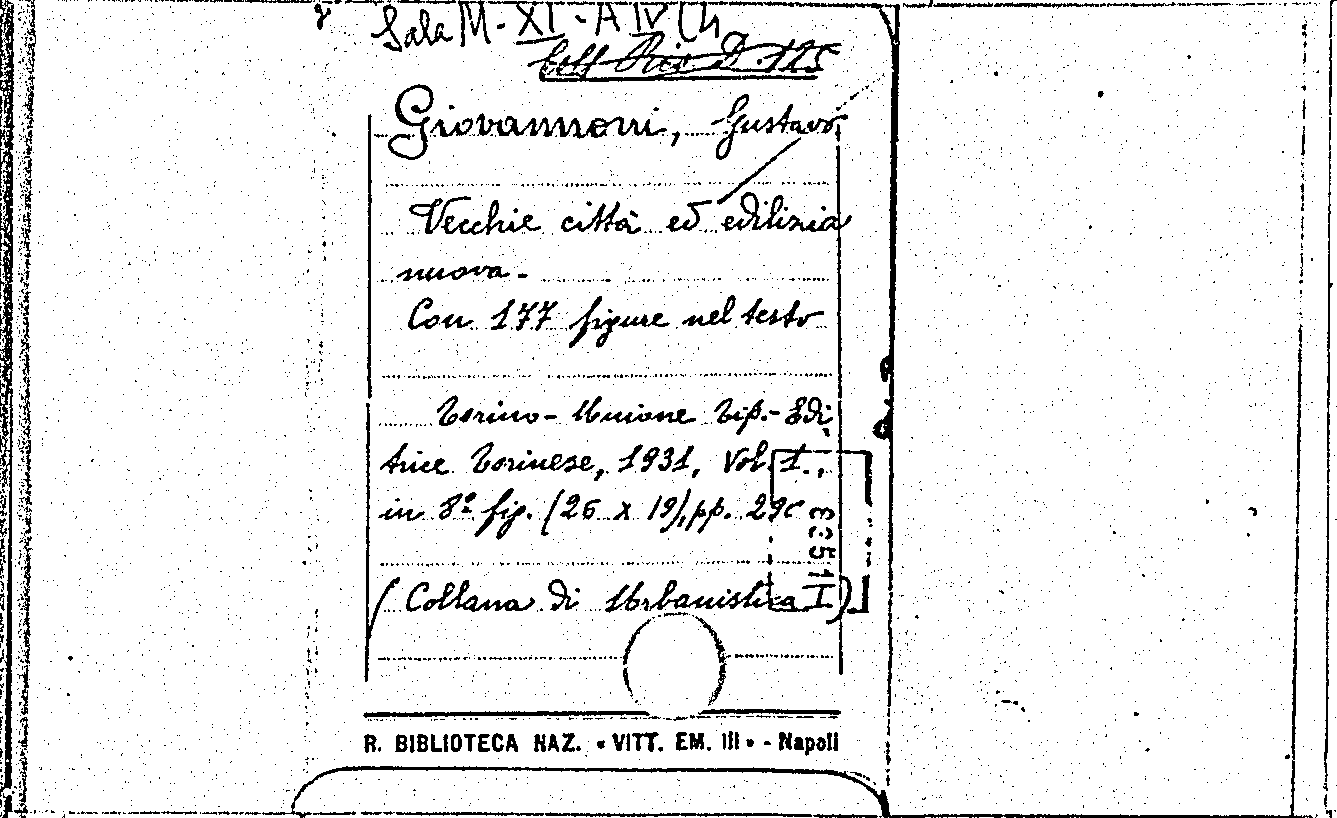 Sala M-XI-A IV (4
Coll Rio D 125
Giovannoni, Gustavo,
Vecchie città ed edilizia
nuova.
Con 177 figure nel testo
Torino - Unione Tip.-Edi
trice Torinese, 1931, Vol. 1.,
in 8º fig. (26 x 19), pp. 29
(Collana di Urbanistica I)
R. BIBLIOTECA NAZ. « VITT. EM. III » - Napoli